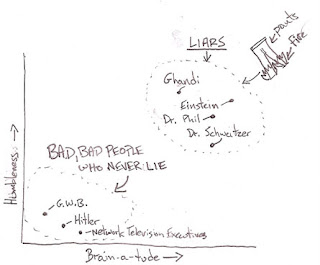 LIARS
pants
Fire
Ghandi
Einstein
Dr. Phil
Dr. Schweitzer
BAD, BAD PEOPLE
WHO NEVER LIE
G.W.B.
Hitler
Network Television Executives
Humbleness
Brain-a-tude